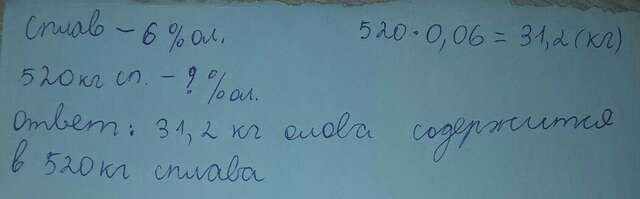 Сплав – 6 % ол. 520 · 0,06 = 31,2 (кг)
520 кг сп. – ? % ол.
Ответ: 31,2 кг олова содержится
в 520 кг сплава